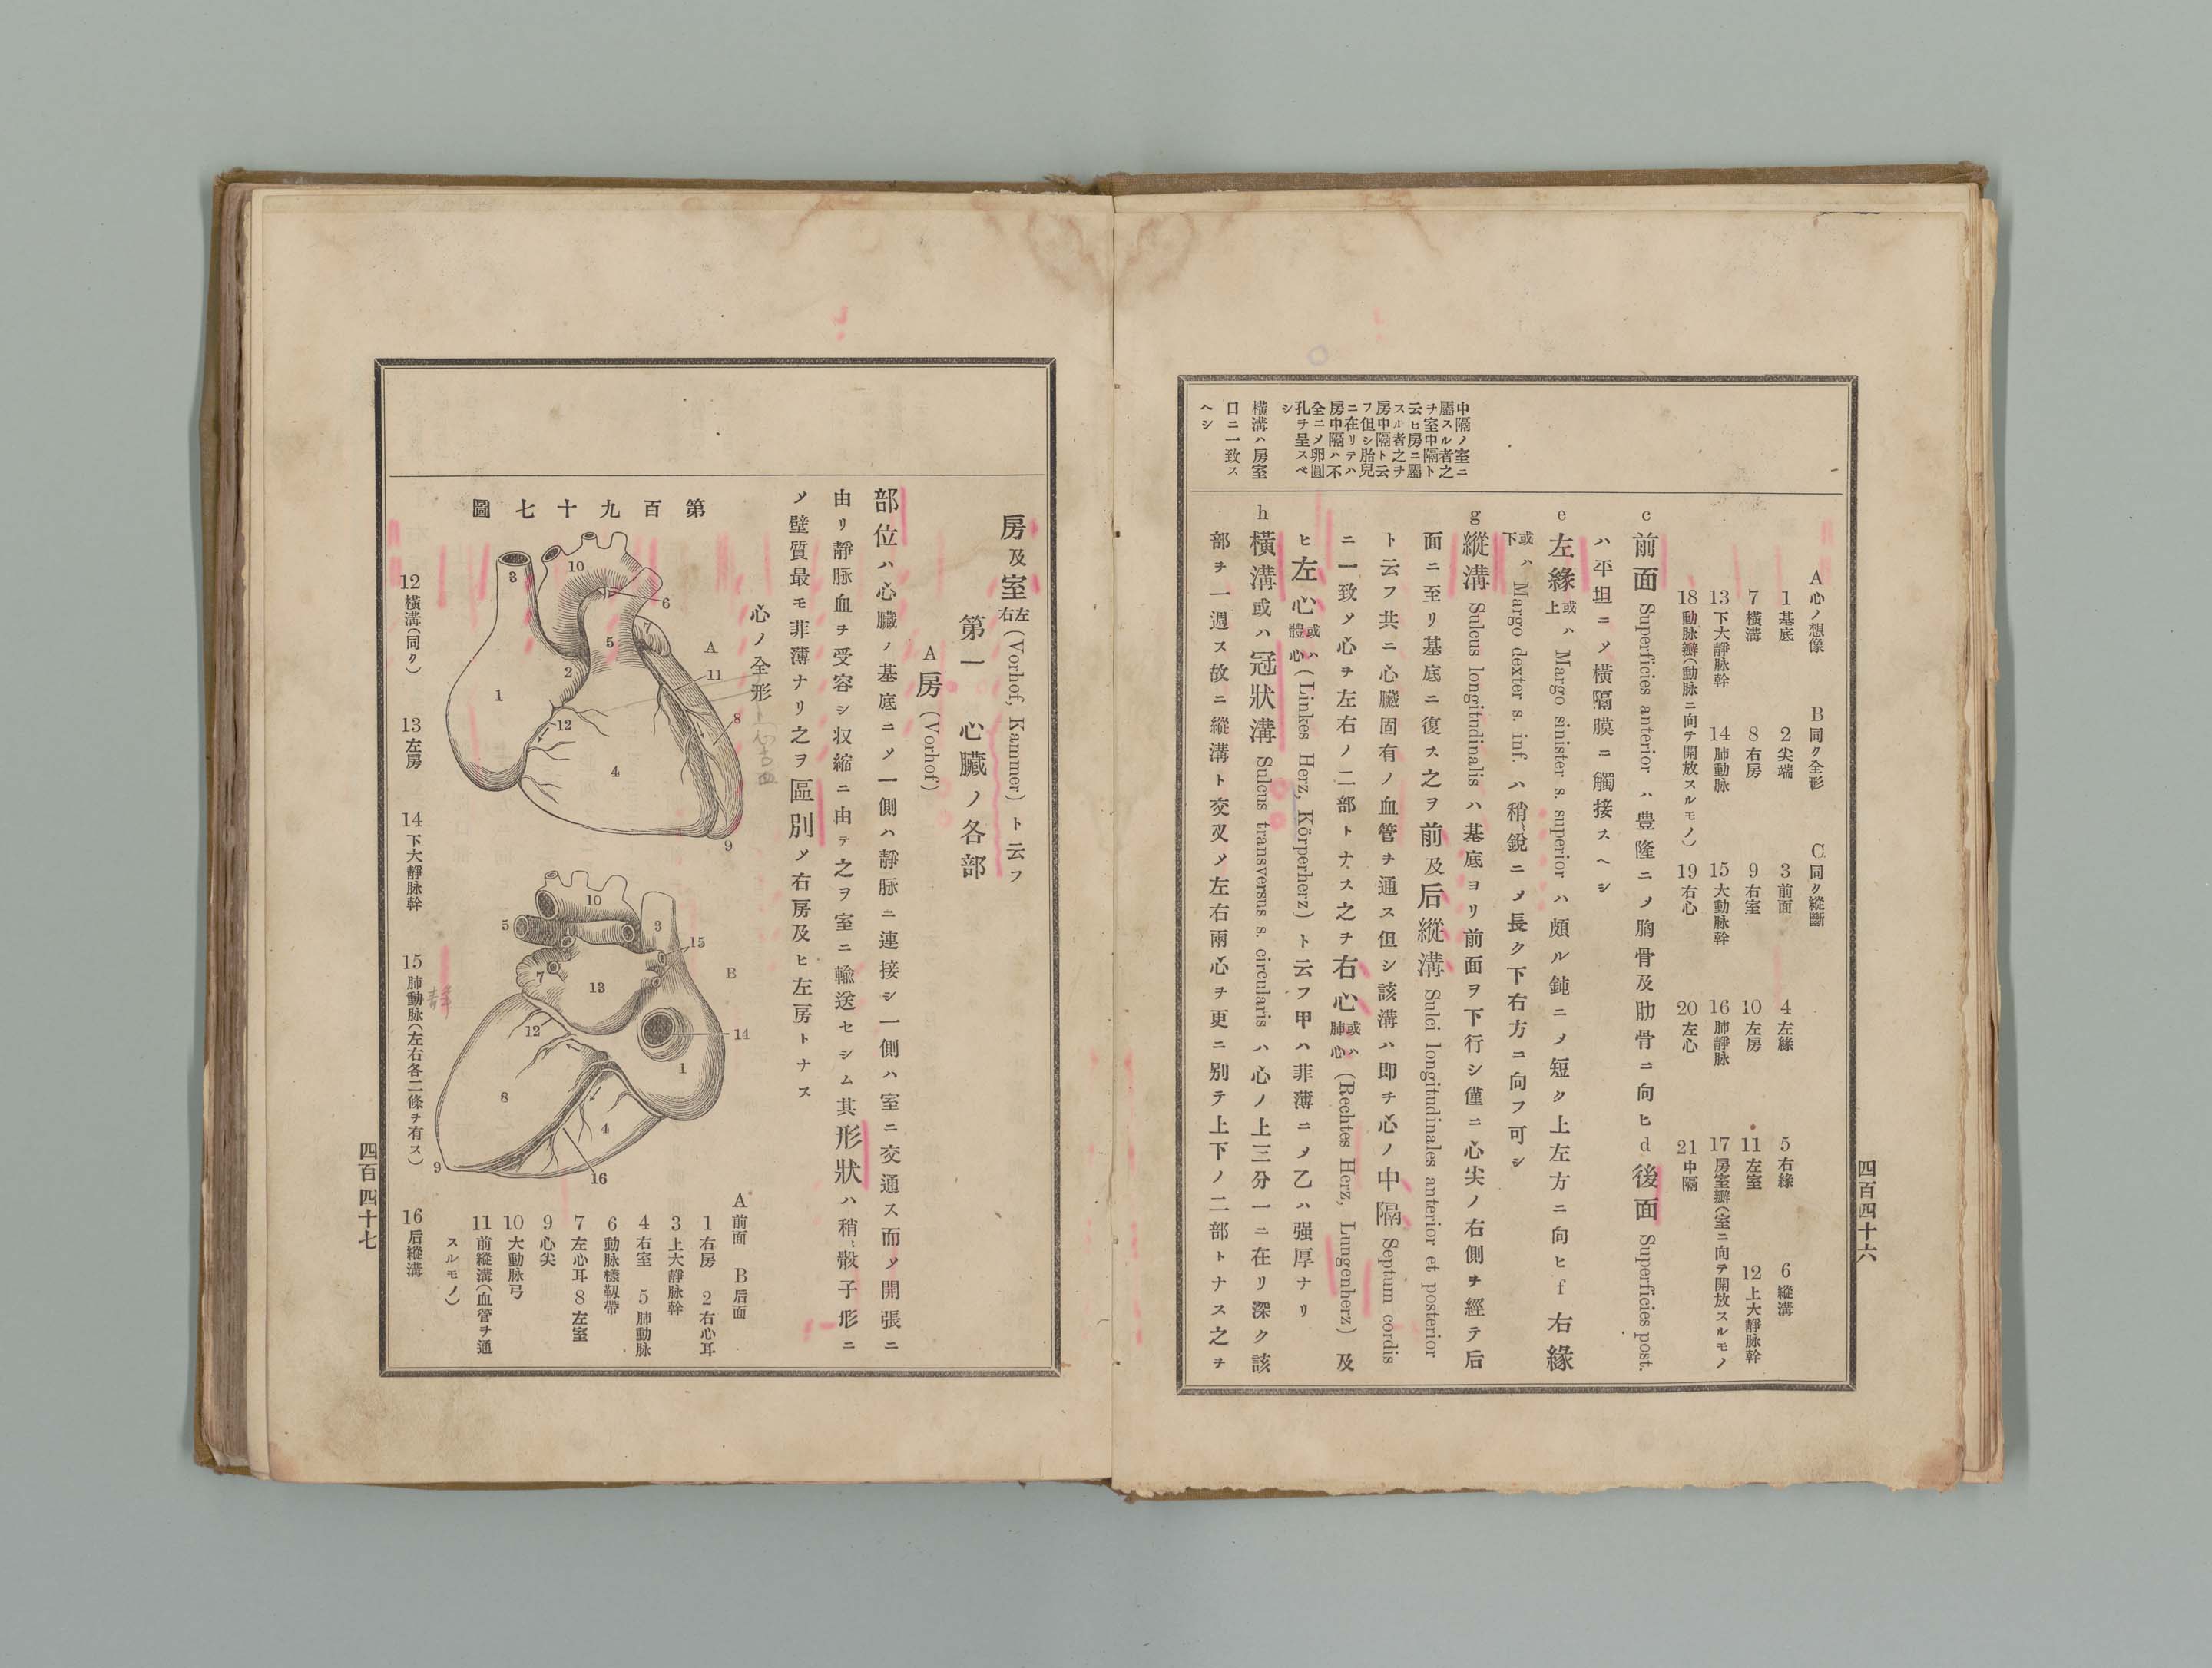 中隔ノ室ニ
屬スル者之
ヲ室中隔ト
云ヒ房ニ屬
スル者之ヲ
房中隔ト云
フ但シ胎兒
ニ在リテハ
房中隔ハ不
全ニ〆卵圓
孔ヲ呈スベ
シ
橫溝ハ房室
口ニ一致ス
ヘシ
A心ノ想像 B同ク全形 C同ク縱斷
1基底 2尖端 3前面 4左緣 5右緣 6縱溝
7橫溝 8右房 9右室 10左房 11左室 12上大靜脉幹
13下大靜脉幹 14肺動脉 15大動脉幹 16肺靜脉 17房室瓣(室ニ向テ開放スルモノ
18動脉瓣(動脉ニ向テ開放スルモノ) 19右心 20左心 21中隔
c前面 Superficies anterior ハ豊隆ニ〆胸骨及肋骨ニ向ヒd後面 Superficies post.
ハ平坦ニ〆橫隔膜ニ觸接スヘシ
e左緣或ハ上 Margo sinister s. superior ハ頗ル鈍ニ〆短ク上左方ニ向ヒf右緣
或ハ下 Margo dexter s. inf. ハ稍銳ニ〆長ク下右方ニ向フ可シ
g縱溝 Sulcus longitudinalis ハ基底ヨリ前面ヲ下行シ僅ニ心尖ノ右側ヲ經テ后
面ニ至リ基底ニ復ス之ヲ前及后縱溝 Sulci longitudinales anterior et posterior
ト云フ共ニ心臟固有ノ血管ヲ通ス但シ該溝ハ即チ心ノ中隔 Septum cordis
ニ一致〆心ヲ左右ノ二部トナス之ヲ右心或ハ肺心(Rechtes Herz, Lungenherz)及
ヒ左心或ハ體心(Linkes Herz, Körperherz)ト云フ甲ハ菲薄ニ〆乙ハ强厚ナリ
h橫溝或ハ冠狀溝 Sulcus transversus s. circularis ハ心ノ上三分一ニ在リ深ク該
部ヲ一週ス故ニ縱溝ト交叉〆左右兩心ヲ更ニ別テ上下ノ二部トナス之ヲ
四百四十六
房及室左右(Vorhof, Kammer)ト云フ
第一 心臟ノ各部
A房(Vorhof)
部位ハ心臟ノ基底ニ〆一側ハ靜脉ニ連接シ一側ハ室ニ交通ス而〆開張ニ
由リ靜脉血ヲ受容シ収縮ニ由テ之ヲ室ニ輸送セシム其形狀ハ稍骰子形ニ
〆壁質最モ菲薄ナリ之ヲ區別〆右房及ヒ左房トナス
心ノ全形
第百九十七圖
A
1
2
3
4
5
6
7
8
9
10
11
12
B
1
3
4
5
7
8
9
10
12
13
14
15
16
A前面 B后面
1右房 2右心耳
3上大靜脉幹
4右室 5肺動脉
6動脉樣靱帶
7左心耳 8左室
9心尖
10大動脉弓
11前縱溝(血管ヲ通
スルモノ)
12橫溝(同ク) 13左房 14下大靜脉幹 15肺動脉(左右各二條ヲ有ス) 16后縱溝
靜
四百四十七